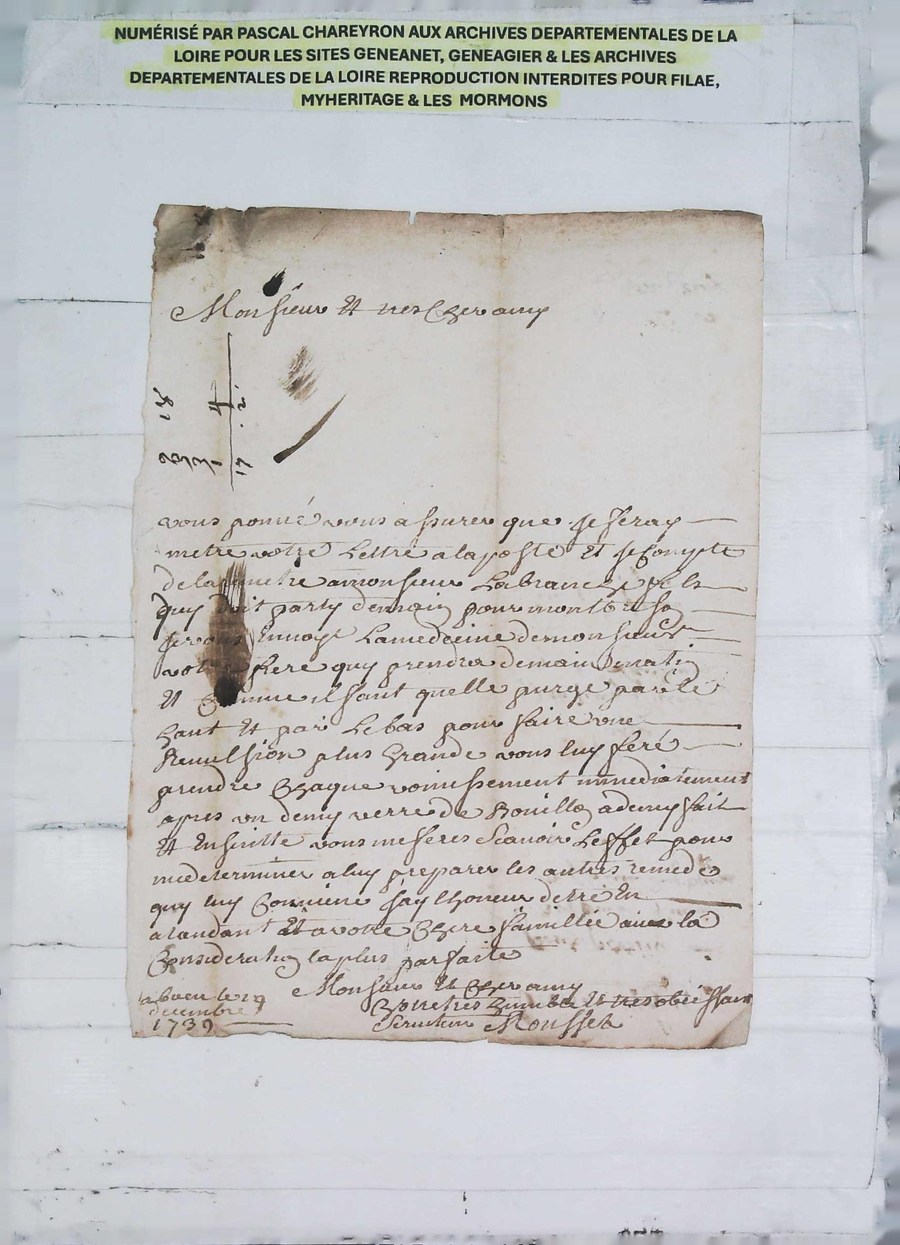 NUMÉRISÉ PAR PASCAL CHAREYRON AUX ARCHIVES DEPARTEMENTALES DE LA
LOIRE POUR LES SITES GENEANET, GENEAGIER & LES ARCHIVES
DEPARTEMENTALES DE LA LOIRE REPRODUCTION INTERDITES POUR FILAE,
MYHERITAGE & LES MORMONS
Monsieur Et tres Cher amy
vous pouvé vous assurer que je feray
metre votre Lettre a la poste Et je Compte
de la metre a monsieur
quy doit party demain pour montbrison
je vous Envoye La medecine de monsieur
votre frere quy prendra demain matin
Et Comme il faut quelle purge par le
haut Et par Le bas pour faire une
Remulsion plus Grande vous luy feré
prendre Chaque vomissement immediatement
apres un demy verre de Bouillon a demy fait
Et Ensuitte vous me feres Scavoir Leffet pour
me determiner a luy preparer les autres remede
quy luy Conviene jay lhoneur detre En
atandant Et a votre Chere famillie avec la
Consideration la plus parfaite
Monsieur Et Cher amy
votre tres humble Et tres obeissant
Serviteur Mousset
a boen le 29
decembre
1739